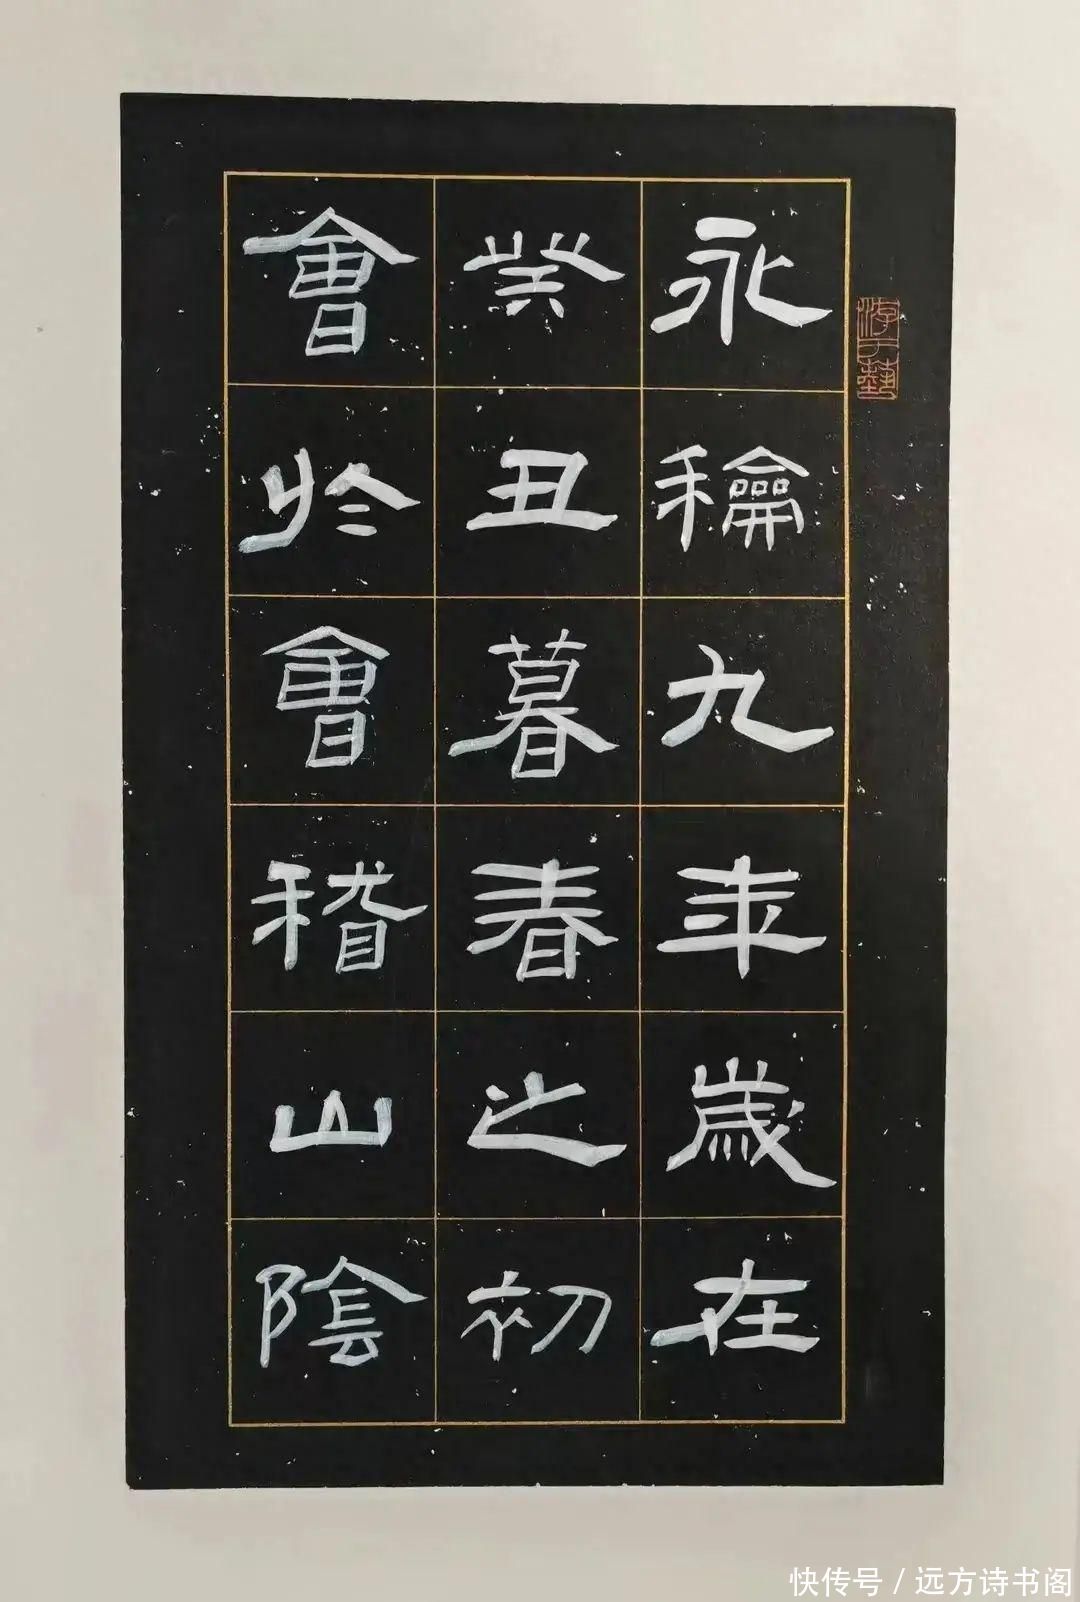 永龢九年歲在
癸丑暮春之初
會於會稽山陰
游于藝
快传号 / 远方诗书阁